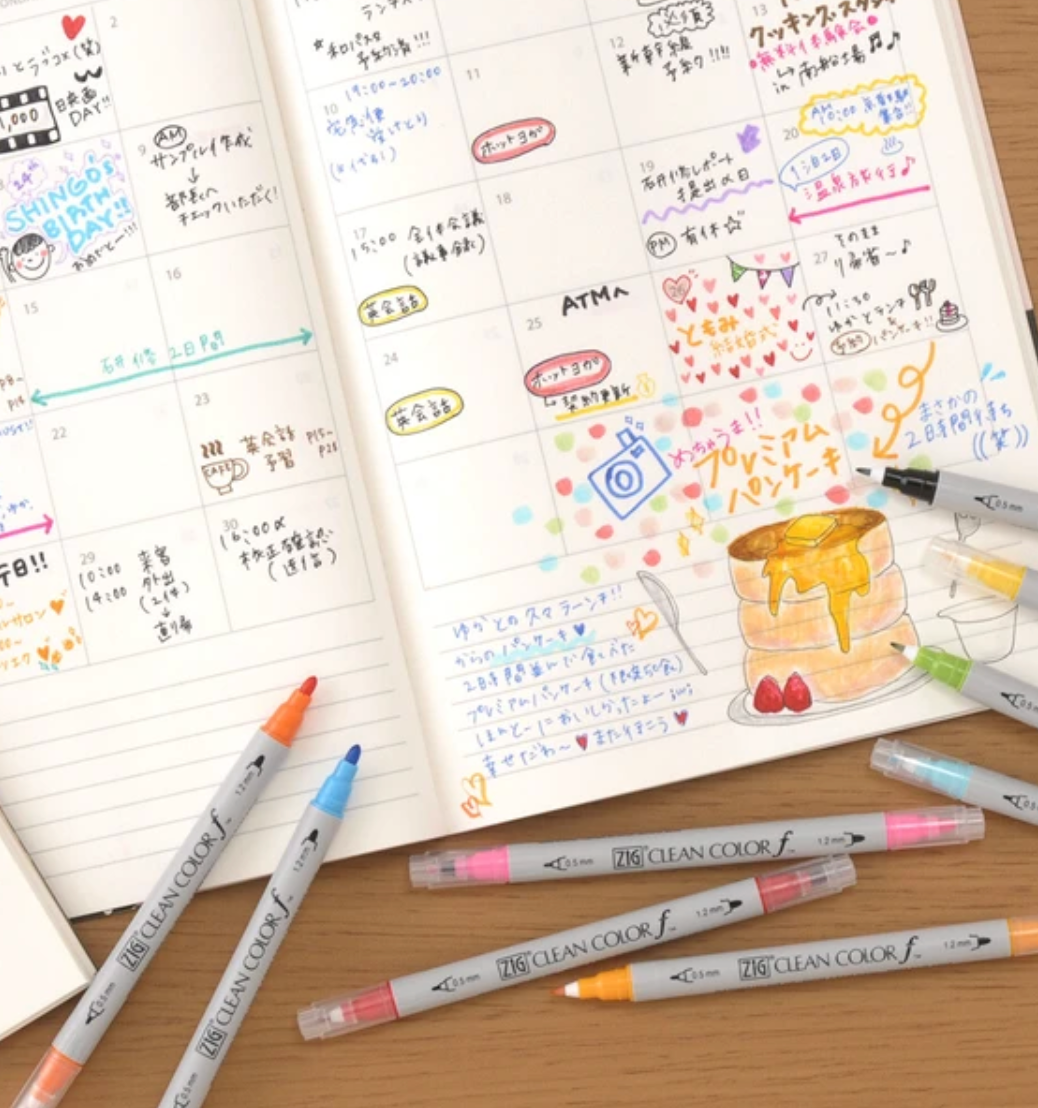 2
とラブコメ(笑)
1,000
映画
DAY!!
24th
SHINGO'S
BIRTH
DAY!!
おめでと〜!!!
9
AM
サンプル作成
↓
部長へ
チェックいただく!
15
16
2日間
22
23
CAFE
英会話
予習
P15〜
P28
29
10:00
来客
14:00
外出
(2件)
↓
直帰
30
16:00〆
校正確認
(返信)
予約
10
19:00〜20:00
宅急便
受けとり
11
ホットヨガ
12
新幹線
予約!!!!
13
クッキングスタジオ
無料体験会
in 南船場
17
15:00 全体会議
(議事録)
英会話
18
19
レポート
提出〆日
PM 有休☆
20
AM
10:00
集合!!
1泊2日
温泉旅行♪
24
英会話
25
ATMへ
ホットヨガ
↳契約更新
26
ともみ
結婚式
27
そのまま
帰省〜♪
11:30
ゆかとランチ
&
予約 パンケーキ!!
まさかの
2時間待ち
((笑))
めっちゃうま!!
プレミアム
パンケーキ
ゆかとの久々ランチ!!
からのパンケーキ♥
2時間並んで食べた
プレミアムパンケーキ(限定50食)
ほんとーにおいしかったよー!!!
幸せだわ〜♥また行こう♥
0.5 mm
0.5 mm
0.5 mm
0.5 mm ZIG CLEAN COLOR f 1.2 mm
0.5 mm ZIG CLEAN COLOR f 1.2 mm
0.5 mm ZIG CLEAN COLOR f 1.2 mm
0.5 mm ZIG CLEAN COLOR f 1.2 mm
0.5 mm ZIG CLEAN COLOR f 1.2 mm